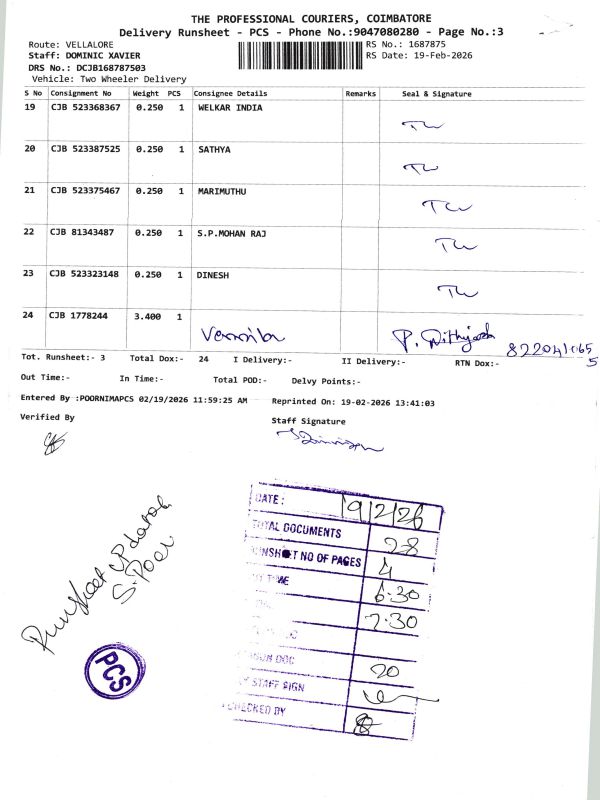 THE PROFESSIONAL COURIERS, COIMBATORE
Delivery Runsheet - PCS - Phone No.:9047080280 - Page No.:3
Route: VELLALORE
RS No.: 1687875
Staff: DOMINIC XAVIER
RS Date: 19-Feb-2026
DRS No.: DCJB168787503
Vehicle: Two Wheeler Delivery
S No Consignment No Weight PCS Consignee Details Remarks Seal & Signature
19 CJB 523368367 0.250 1 WELKAR INDIA
20 CJB 523387525 0.250 1 SATHYA
21 CJB 523375467 0.250 1 MARIMUTHU
22 CJB 81343487 0.250 1 S.P.MOHAN RAJ
23 CJB 523323148 0.250 1 DINESH
24 CJB 1778244 3.400 1
Tot. Runsheet:- 3 Total Dox:- 24 I Delivery:- II Delivery:- RTN Dox:-
5
Out Time:- In Time:- Total POD:- Delvy Points:-
Entered By :POORNIMAPCS 02/19/2026 11:59:25 AM Reprinted On: 19-02-2026 13:41:03
Verified By
Staff Signature
DATE : 19/2/26
TOTAL DOCUMENTS 28
NO OF PAGES 4
TIME 6.30
7.30
DOC 20
STAFF SIGN
CHECKED BY
Runsheet Updated
S.Poor
PCS